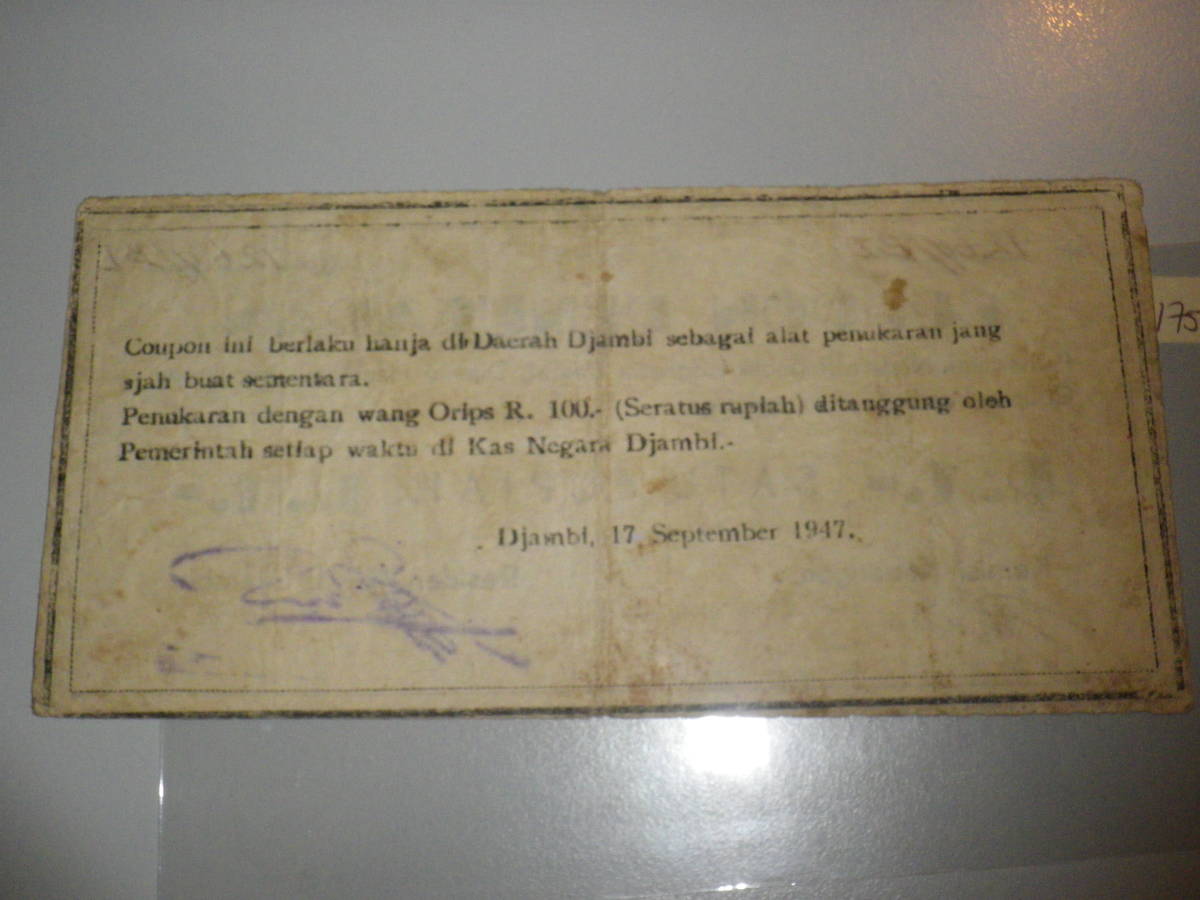 Coupon ini berlaku hanja di Daerah Djambi sebagai alat penukaran jang
sjah buat sementara.
Penukaran dengan wang Orips R. 100.- (Seratus rupiah) ditanggung oleh
Pemerintah setiap waktu di Kas Negara Djambi.-
Djambi, 17 September 1947.
175